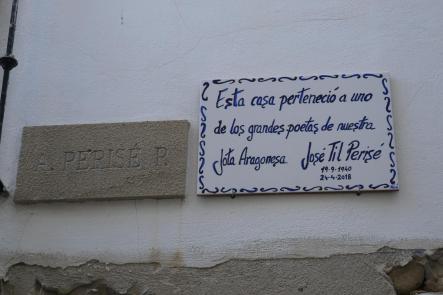 A. PERISÉ P.
Esta casa perteneció a uno
de los grandes poetas de nuestra
Jota Aragonesa José Til Perisé
19-9-1940
24-4-2018